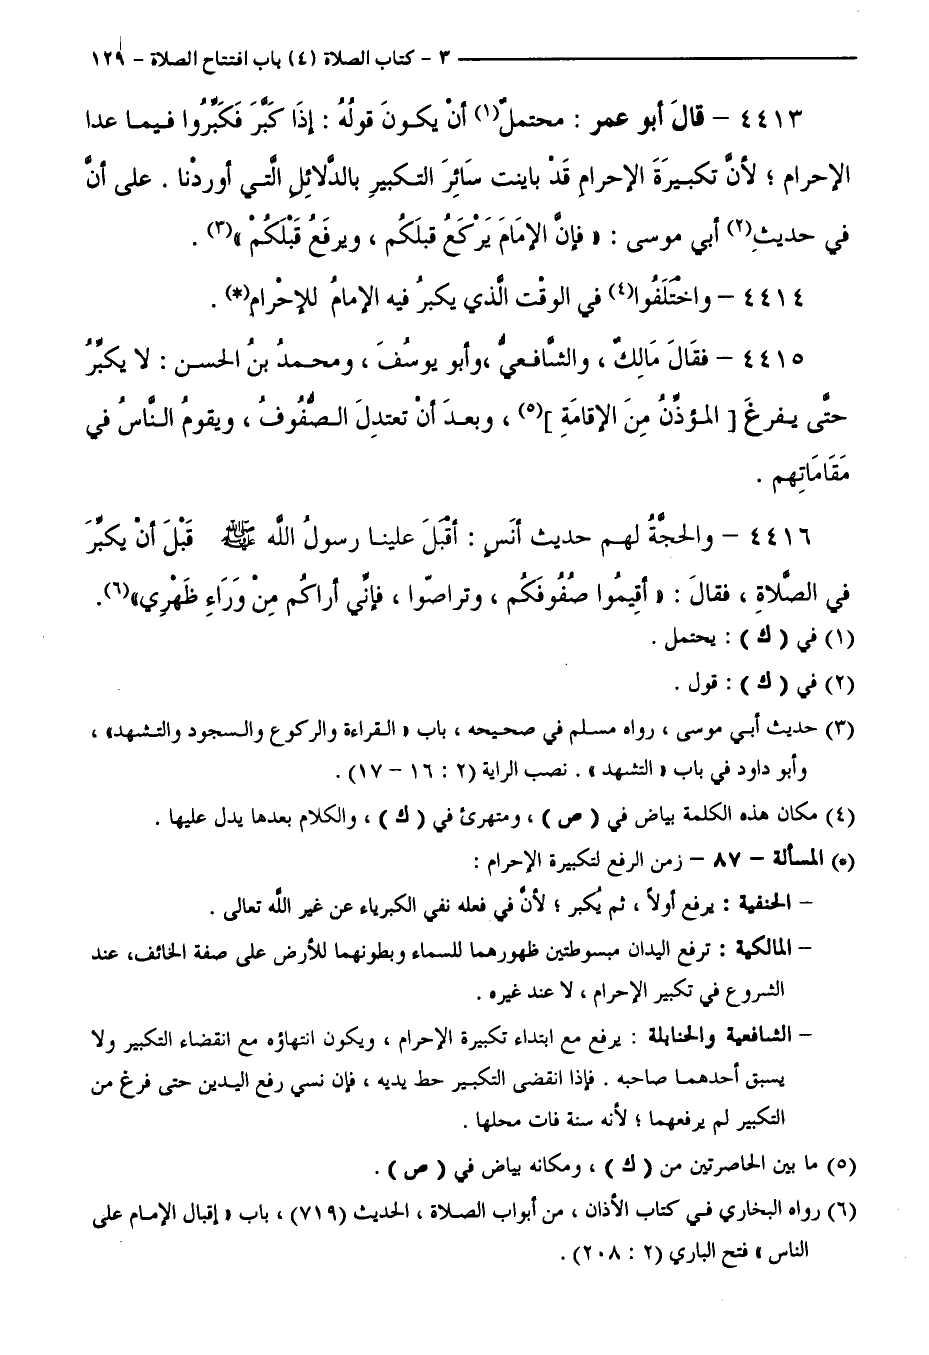 ٣ - كتاب الصلاة (٤) باب افتتاح الصلاة - ١٢٩
٤٤١٣ – قالَ أبو عمر : محتملٌ(١) أنْ يكونَ قولُهُ : إذَا كَبَّرَ فَكَبِّرُوا فيما عدا
الإحرام ؛ لأنَّ تكبيرَةَ الإحرامِ قَدْ باينت سَائِرَ التكبيرِ بالدَّلائلِ الَّتي أوردْنا . على أنَّ
في حديثِ(٢) أبي موسى : « فإنَّ الإمَامَ يَرْكَعُ قبلَكُم ، ويرفَعُ قَبْلَكُمْ »(٣) .
٤٤١٤ – واخْتَلَفُوا(٤) في الوقْت الَّذي يكبرُ فيه الإمامُ للإحْرام(*) .
٤٤١٥ – فقَالَ مَالِكٌ ، والشَّافعيُّ ،وأبو يوسُفَ ، ومحمدُ بنُ الحسن : لا يكبِّرُ
حتَّى يفرغَ [ المؤذِّنُ مِنَ الإقامَةِ ](٥) ، وبعدَ أنْ تعتدلَ الصُّفُوفُ ، ويقومُ النَّاسُ في
مَقَامَاتِهم .
٤٤١٦ – والحجَّةُ لهم حديث أنَسٍ : أقْبَلَ علينا رسولُ اللَّه ﷺ قَبْلَ أنْ يكبِّرَ
في الصَّلاةِ ، فقالَ : « أقِيمُوا صُفُوفَكُم ، وتراصّوا ، فإنِّي أراكُم مِنْ وَرَاءِ ظَهْرِي»(٦).
(١) في ( ك ) : يحتمل .
(٢) في ( ك ) : قول .
(٣) حديث أبي موسى ، رواه مسلم في صحيحه ، باب « القراءة والركوع والسجود والتشهد» ،
وأبو داود في باب « التشهد » . نصب الراية (٢ : ١٦ – ١٧) .
(٤) مكان هذه الكلمة بياض في ( ص ) ، ومتهرئ في ( ك ) ، والكلام بعدها يدل عليها .
(*) المسألة – ٨٧ – زمن الرفع لتكبيرة الإحرام :
– الحنفية : يرفع أولاً ، ثم يُكبر ؛ لأنَّ في فعله نفي الكبرياء عن غير اللَّه تعالى .
– المالكية : ترفع اليدان مبسوطتين ظهورهما للسماء وبطونهما للأرض على صفة الخائف، عند
الشروع في تكبير الإحرام ، لا عند غيره .
– الشافعية والحنابلة : يرفع مع ابتداء تكبيرة الإحرام ، ويكون انتهاؤه مع انقضاء التكبير ولا
يسبق أحدهما صاحبه . فإذا انقضى التكبير حط يديه ، فإن نسي رفع اليدين حتى فرغ من
التكبير لم يرفعهما ؛ لأنه سنة فات محلها .
(٥) ما بين الحاصرتين من ( ك ) ، ومكانه بياض في ( ص ) .
(٦) رواه البخاري في كتاب الأذان ، من أبواب الصلاة ، الحديث (٧١٩) ، باب « إقبال الإمام على
الناس » فتح الباري (٢ : ٢٠٨) .